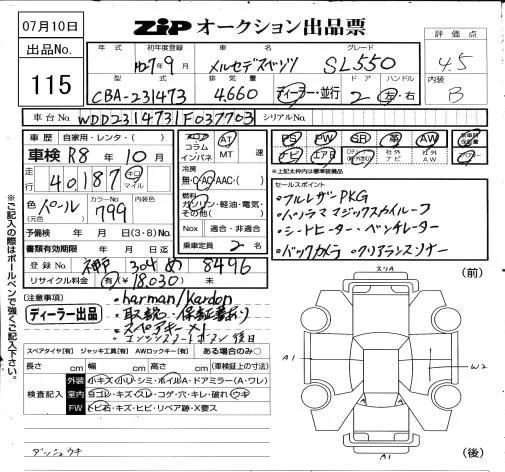 07月10日
ZIP オークション出品票
出品No.
115
年式 初年度登録 車名 グレード
H27・9月 メルセデスベンツ SL550
型式 排気量 ドア ハンドル
CBA-231473 4.660 ディーラー・並行 2 左・右
評価点
4.5
内装
B
車台No. WDD2314731F037703 シリアルNo.
車歴 自家用・レンタ( )
車検 R8年10月
走行 40187 キロ マイル
色 パール カラーNo. 799 内装色
(元色)
予備検 年 月 日(3・8)No.
書類有効期限 年 月 日迄
登録No. 神戸 304 め 8496
リサイクル料金 有(¥18,030) 未
コラム AT
インパネ MT 速
冷房
無・C・AC・AAC・( )
燃料
ガソリン・軽油・電気・
その他( )
Nox 適合・非適合
乗車定員 2 名
PS PW SR 革 AW
ナビ エアB 社外ナビ 社外AW
*上記太枠内は標準装備品
セールスポイント
・フルレザーPKG
・パノラマ マジックスカイルーフ
・シートヒーター・ベンチレーター
・バックカメラ ・クリアランスソナー
[注意事項]
ディーラー出品
・harman/Kardon
・取説・保証書あり
・スペアキー×1
スペアタイヤ[有] ジャッキ工具[有] AWロックキー[有] ある場合のみ〇
長さ cm 幅 cm 高さ cm (車検証上の寸法)
検査記入
外装 小キズ・小リ・シミ・ホイルA・ドアミラー(A・ワレ)
室内 ヨゴレ・キズ・スレ・コゲ・穴・キレ・破れ・ウキ
FW トビ石・キズ・ヒビ・リペア跡・X要ス
ダッシュウキ
※ご記入の際はボールペンで強くご記入下さい。
(前)
スリA
A1
W2
A1
(後)